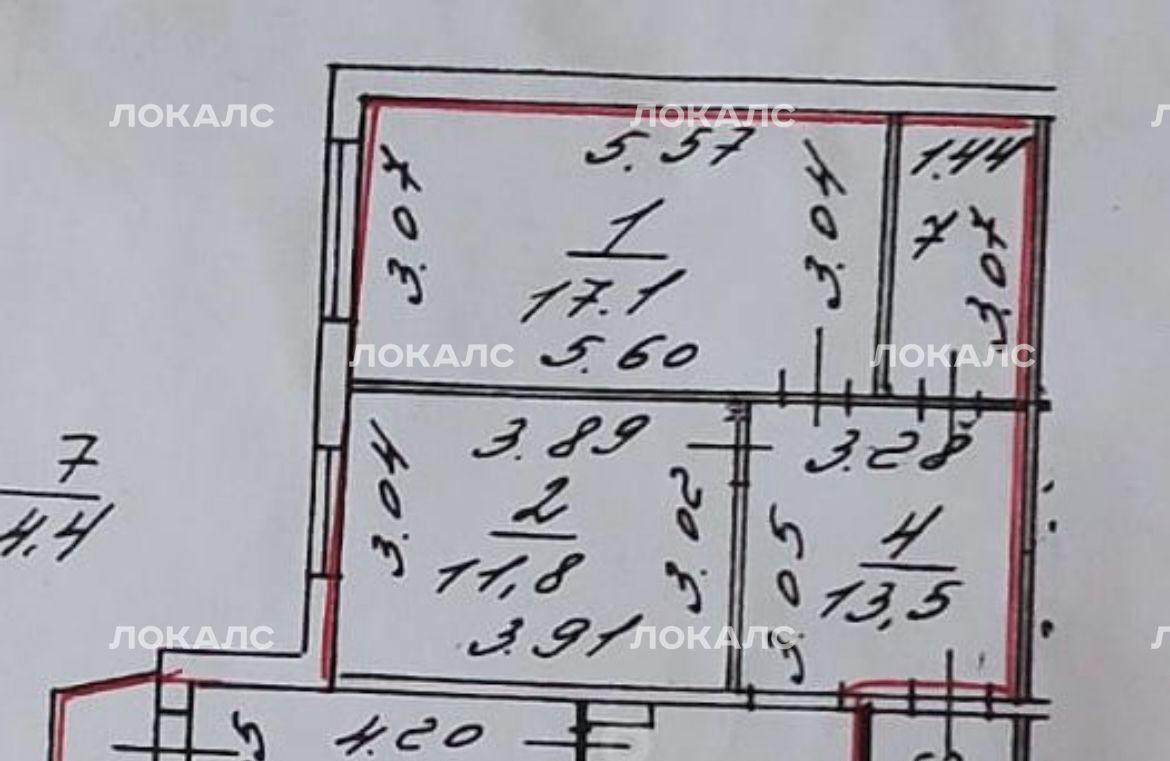 ЛОКАЛС ЛОКАЛС
5.57 1.44
3.07 3.04 7 3.07
1
17.1
5.60
ЛОКАЛС ЛОКАЛС
3.89 3.28
7
4.4
3.04 2 3.02 3.05 4
11,8 13,5
3.91
ЛОКАЛС ЛОКАЛС
4.20